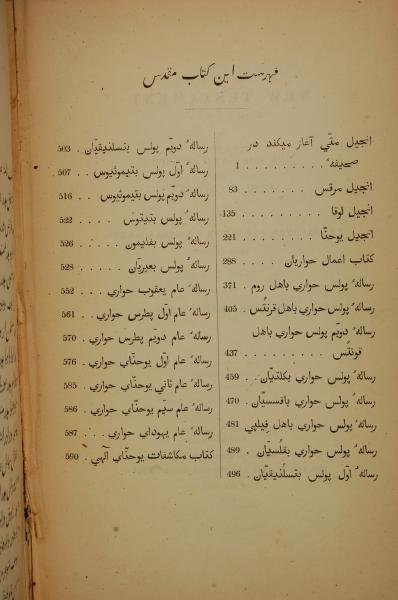 فهرست این کتاب مقدس
انجیل متّی آغاز میکند در
صحیفهٔ . . . . . . . . 1
انجیل مرقس . . . . . . 83
انجیل لوقا . . . . . . . 135
انجیل یوحنّا . . . . . . 221
کتاب اعمال حواریان . . . 288
رسالهٔ پولس حواري باهل روم . 371
رسالهٔ پولس حواري باهل قرنتُس . 405
رسالهٔ دویّم پولس حواري باهل
قرنتُس . . . . . . . . 437
رسالهٔ پولس حواري بکلتیّان . 459
رسالهٔ پولس حواري بافسسیّان . 470
رسالهٔ پولس حواري باهل فیلپي 481
رسالهٔ پولس حواري بقلسیّان . 489
رسالهٔ اوّل پولس بتسلنیقیّان . 496
رسالهٔ دویّم پولس بتسلنیقیّان . 503
رسالهٔ اوّل پولس بتیموثیوس . . 507
رسالهٔ دویّم پولس بتیموثیوس . 516
رسالهٔ پولس بتیتوس . . . . 522
رسالهٔ پولس بفلیمون . . . . 526
رسالهٔ پولس بعبریّان . . . . . 528
رسالهٔ عام یعقوب حواري . . . 552
رسالهٔ عام اوّل پطرس حواري . 561
رسالهٔ عام دویّم پطرس حواري . 570
رسالهٔ عام اوّل یوحنّاي حواري . 576
رسالهٔ عام ثاني یوحنّاي حواري . 585
رسالهٔ عام سیّم یوحنّاي حواري . 586
رسالهٔ عام یهوداي حواري . . . 587
کتاب مکاشفات یوحنّاي الٓهي . 590